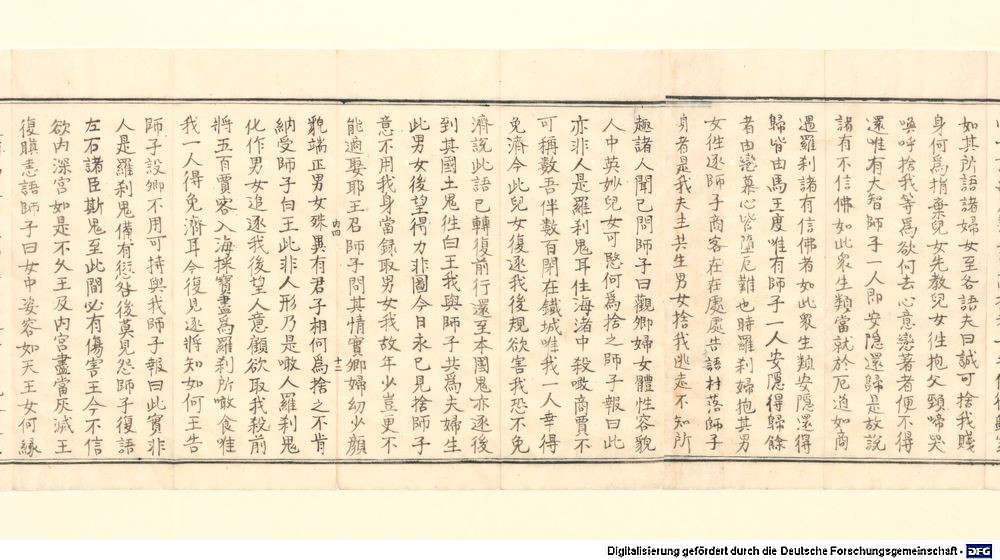 如其所語諸婦女至各語夫曰誠可捨我賤
身何為捐棄兒女先教兒女往抱父頸啼哭
喚呼捨我等為欲何去心意戀著者便不得
還唯有大智師子一人即安隱還歸是故說
諸有不信佛如此眾生類當就於厄道如商
遇羅刹諸有信佛者如此眾生類安隱還得
歸皆由馬王度唯有師子一人安隱得歸餘
者由戀慕心皆墮厄難也時羅刹婦抱其男
女往逐師子商客在在處處告語村落師子
身者是我夫主共生男女捨我逃走不知所
趣諸人聞已問師子曰觀卿婦女體性容貌
人中英妙兒女可愍何為捨之師子報曰此
亦非人是羅刹鬼耳住海渚中殺噉商賈不
可稱數吾伴數百閉在鐵城唯我一人幸得
免濟今此兒女復逐我後規欲害我恐不免
濟說此語已轉復前行還至本國鬼亦逐後
到其國土鬼往白王我與師子共為夫婦生
此男女後望得力非圖今日永已見捨師子
意不用我身當錄取男女我故年少豈更不
能適娶耶王召師子問其情實卿婦幼少顏
貌端正男女殊異有君子相何為捨之不肯
納受師子白王此非人形乃是噉人羅刹鬼
化作男女追逐我後望人意顧欲取我殺前
將五百賈客入海採寶盡為羅刹所噉食唯
我一人得免濟耳今復見逐將知如何王告
師子設卿不用可持與我師子報曰此實非
人是羅刹鬼備有愆咎後莫見怨師子復語
左右諸臣斯鬼至此間必有傷害王今不信
欲內深宮如是不久王及內宮盡當灰滅王
復瞋恚語師子曰女中姿容如天王女何緣
內四
十二
Digitalisierung gefördert durch die Deutsche Forschungsgemeinschaft - DFG